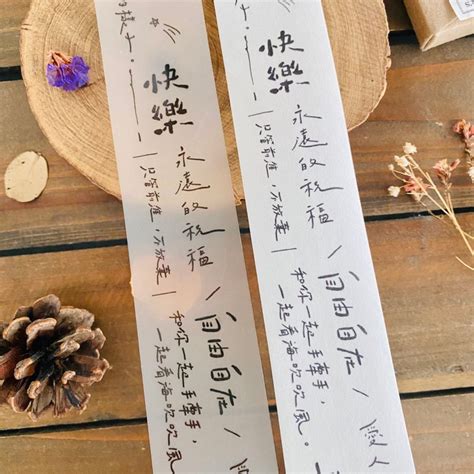 的樣子。
快樂
永遠的祝福
|只管前進，不放棄|
\自由自在/
和你一起手牽手，
一起看海吹吹風。
快樂
永遠的祝福
|只管前進，不放棄|
\自由自在/
和你一起手牽手，
一起看海吹吹風。